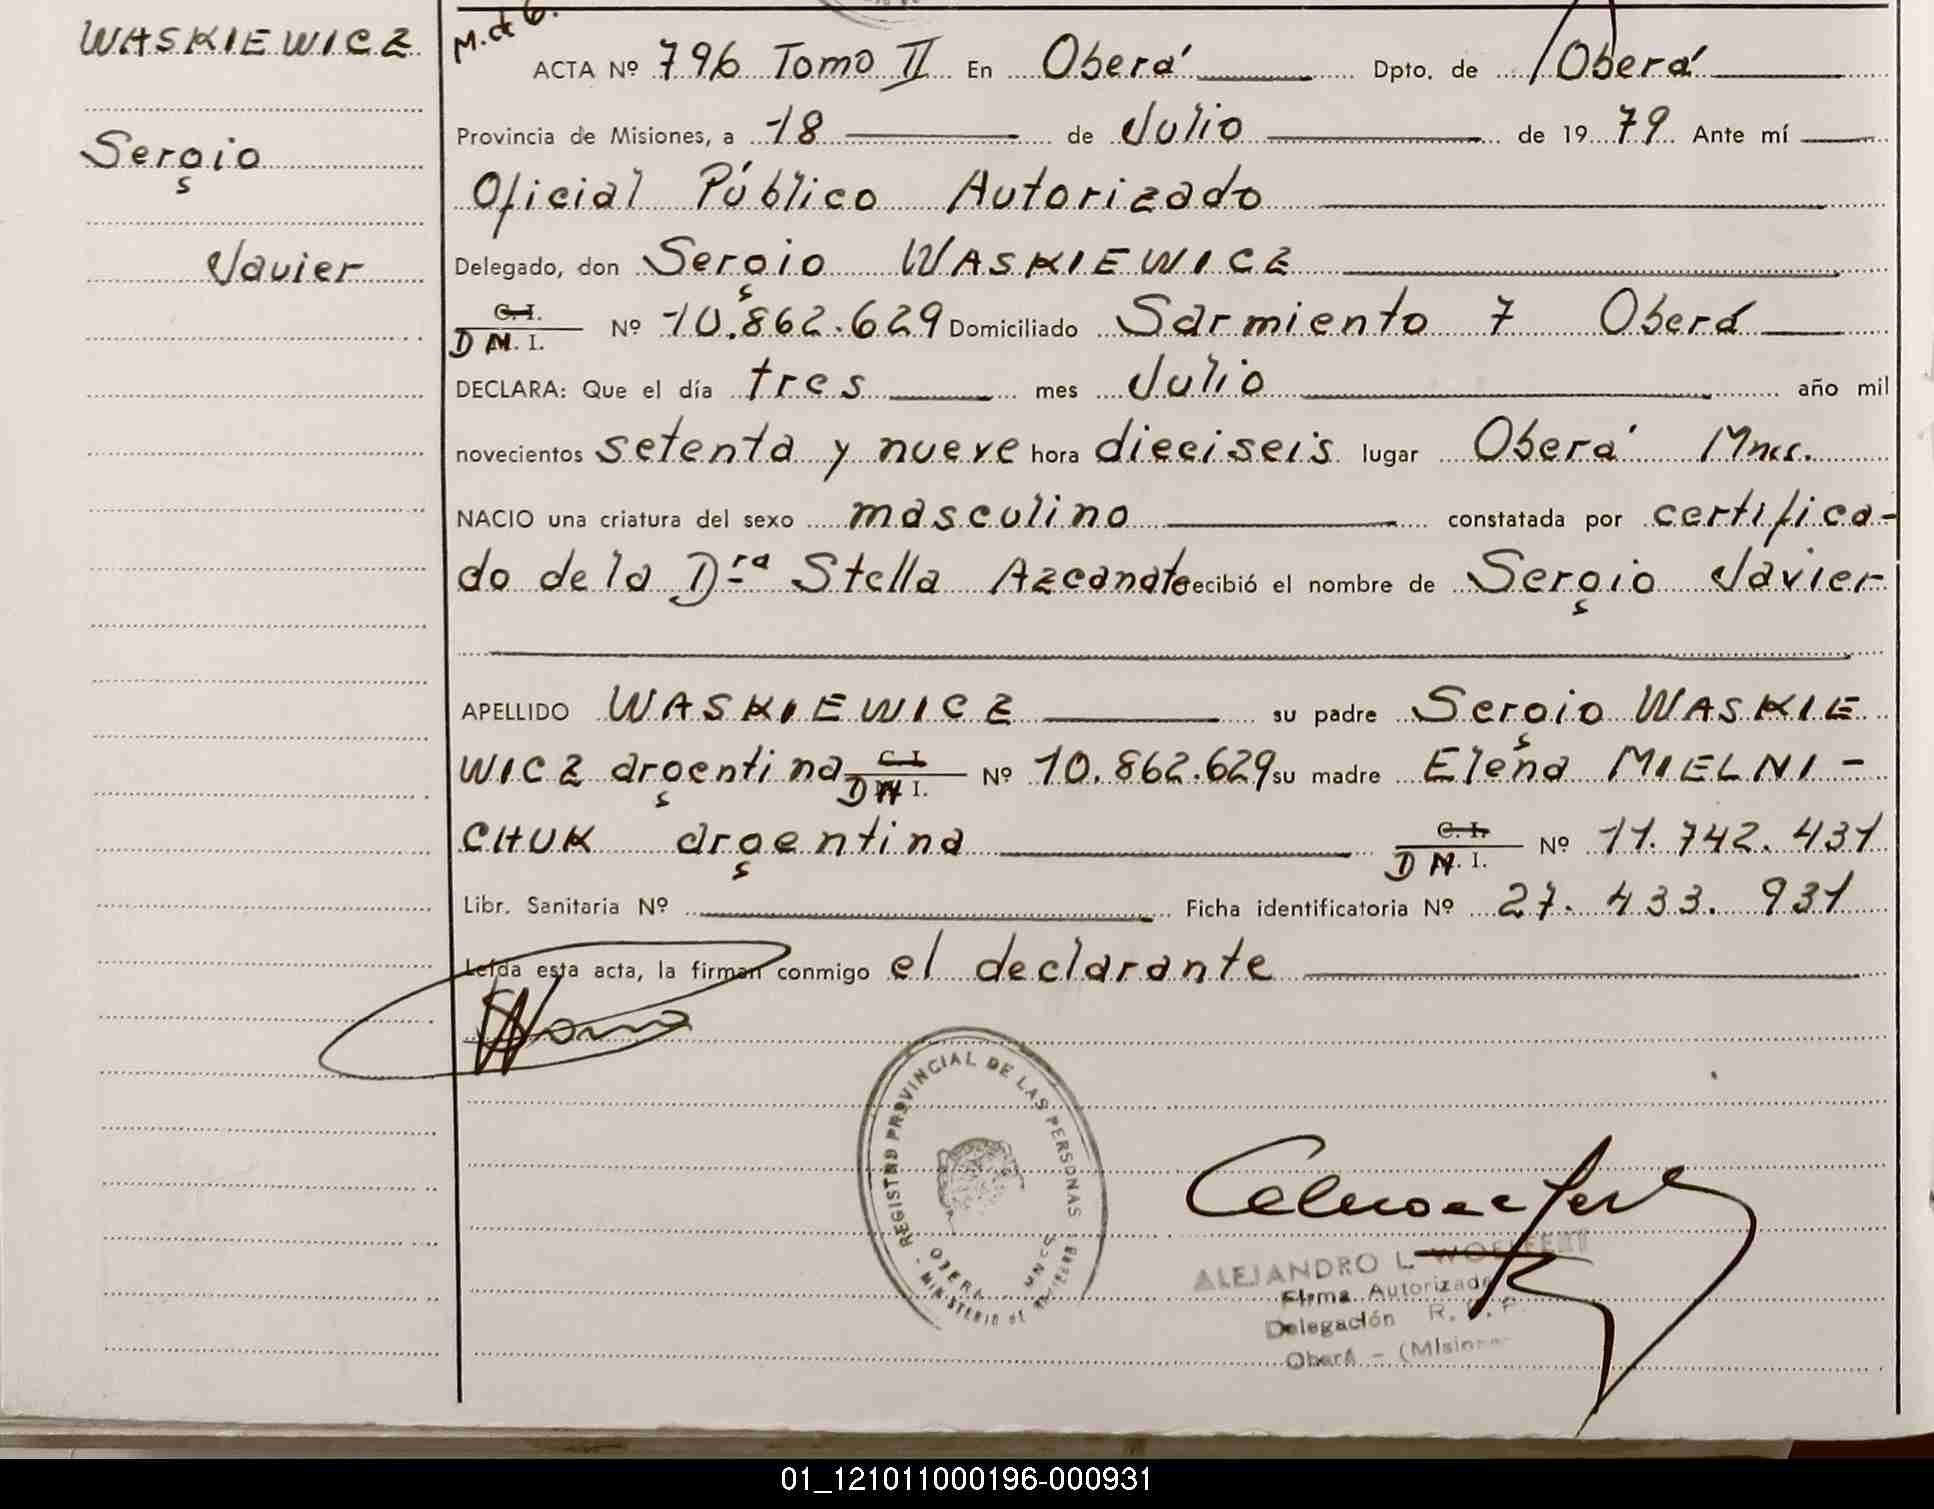 WASKIEWICZ
Sergio
Javier
M. de G.
ACTA Nº 796 Tomo II En Oberá Dpto. de Oberá
Provincia de Misiones, a 18 de Julio de 1979 Ante mí
Oficial Público Autorizado
Delegado, don Sergio WASKIEWICZ
C.I.
D N. I. Nº 10.862.629 Domiciliado Sarmiento 7 Oberá
DECLARA: Que el día tres mes Julio año mil
novecientos setenta y nueve hora dieciseis lugar Oberá Mnes.
NACIO una criatura del sexo masculino constatada por certifica-
do de la Dra Stella Azcanate recibió el nombre de Sergio Javier
APELLIDO WASKIEWICZ su padre Sergio WASKIE
WICZ argentina C.I. D N I. Nº 10.862.629 su madre Elena MIELNI-
CHUK argentina C.I. D N. I. Nº 11.742.431
Libr. Sanitaria Nº Ficha identificatoria Nº 27.433.931
Leída esta acta, la firman conmigo el declarante
REGISTRO PROVINCIAL DE LAS PERSONAS
OBERA MNES
MINISTERIO DE
ALEJANDRO L.
Firma Autorizada
Delegación R.
Oberá - (Misiones
01_121011000196-000931